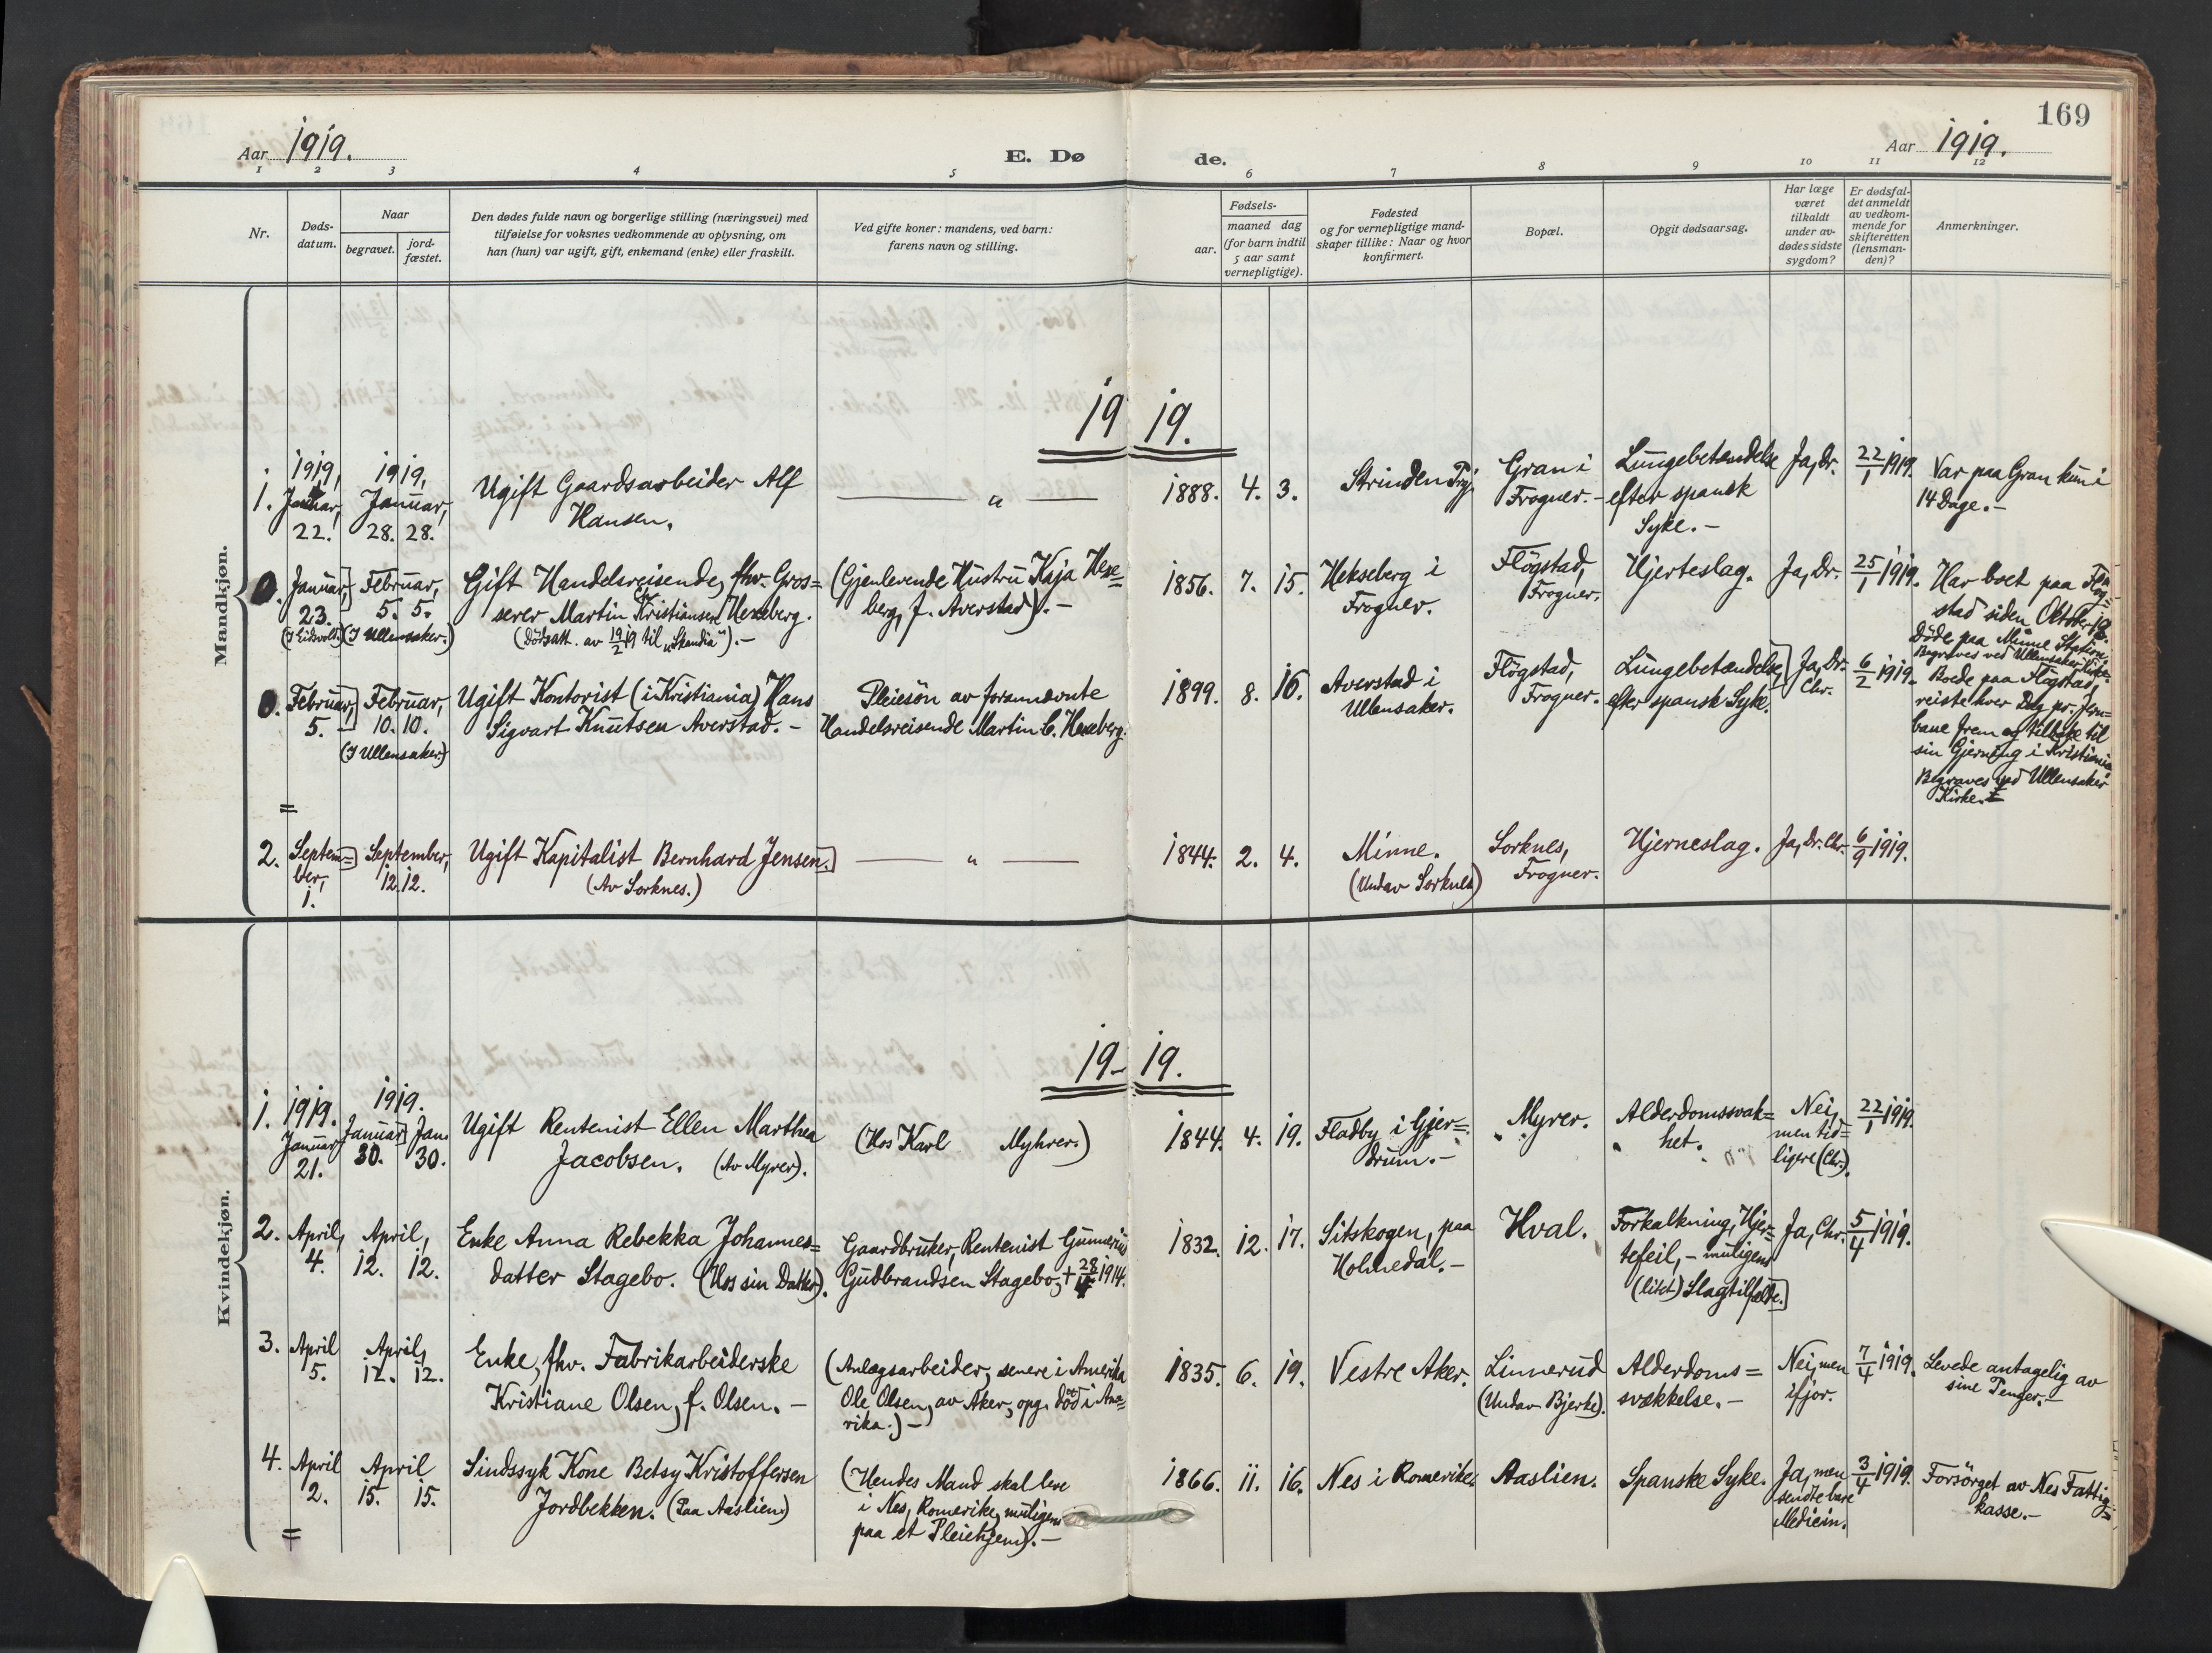 169
Aar 1919.
E. Døde.
Aar 1919.
1 2 3 4 5 6 7 8 9 10 11 12
Nr.
Døds-
datum.
Naar
begravet.
jord-
fæstet.
Den dødes fulde navn og borgerlige stilling (næringsvei) med
tilføielse for voksnes vedkommende av oplysning, om
han (hun) var ugift, gift, enkemand (enke) eller fraskilt.
Ved gifte koner: mandens, ved barn:
farens navn og stilling.
Fødsels-
aar.
maaned dag
(for barn indtil
5 aar samt
vernepligtige).
Fødested
og for vernepligtige mand-
skaper tillike: Naar og hvor
konfirmert.
Bopæl.
Opgit dødsaarsag.
Har læge
været
tilkaldt
under av-
dødes sidste
sygdom?
Er dødsfal-
det anmeldt
av vedkom-
mende for
skifteretten
(lensman-
den)?
Anmerkninger.
Mandkjøn.
19 19.
1.
1919,
Januar,
22.
1919,
Januar,
28. 28.
Ugift Gaardsarbeider Alf
Hansen.
— " —
1888. 4. 3.
Strinden
Gran i
Frogner. -
Lungebetændelse
efter spansk
Syke. -
Ja, Dr.
22/1 1919.
Var paa Gran kun i
14 Dage. -
0.
Januar,
23.
(I Eidsvold.)
Februar,
5. 5.
(I Ullensaker.)
Gift Handelsreisende, fhv. Gros=
serer Martin Chr Kristiansen Hexeberg.
(Dödsatt. av 19/2 19 til "Skandia"). -
(Gjenlevende Hustru Kaja Hexe=
berg, f. Averstad). -
1856. 7. 15.
Hekseberg i
Frogner.
Flögstad,
Frogner.
Hjerteslag.
Ja, Dr.
25/1 1919.
Har boet paa Flög=
stad siden Oktober 18.
Döde paa Minne Station.
Begraves ved Ullensaker Kirke.
0.
Februar,
5.
Februar,
10. 10.
(I Ullensaker)
Ugift Kontorist (i Kristiania) Hans
Sigvart Knutsen Averstad. -
Pleiesön av forannævnte
Handelsreisende Martin C. Hexeberg.
1899. 8. 16.
Averstad i
Ullensaker.
Flögstad,
Frogner.
Lungebetændelse
efter spansk Syke.
Ja, Dr.
Chr.
6/2 1919.
Boede paa Flögstad,
reiste hver Dag pr. Jern=
bane frem og tilbake til
sin Gjerning i Kristiania
Begraves ved Ullensaker
Kirke.
=
2.
Septem=
ber,
1.
September,
12. 12.
Ugift Kapitalist Bernhard Jensen.
(Av Sorknes.)
— " —
1844. 2. 4.
Minne.
(Undav Sorknes)
Sorknes,
Frogner.
Hjerneslag.
Ja, Dr. Chr.
6/9 1919.
Kvindekjøn.
19- 19.
1.
1919.
Januar
21.
1919.
Januar Jan.
30. 30.
Ugift Rentenist Ellen Marthea
Jacobsen. (Av Myrer).
(Hos Karl Myhrer.)
1844. 4. 19.
Fladby i Gjer=
drum. -
Myrer.
Alderdomssvak=
het.
Nei,
men tid=
ligere (Chr.).
22/1 1919.
2.
April,
4.
April,
12. 12.
Enke Anna Rebekka Johannes=
datter Stagebo. (Hos sin Datter).
Gaardbruker, Rentenist Gunnerius
Gudbrandsen Stagebo, + 28/4 1914.
1832. 12. 17.
Sitskogen, paa
Holmedal. -
Hval.
Forkalkning, Hjer=
tefeil, - muligens
(litet) Slagtilfælde.
Ja, Chr.
5/4 1919.
3.
April
5.
April,
12. 12.
Enke, fhv. Fabrikarbeiderske
Kristiane Olsen, f. Olsen. -
(Anlægsarbeider, senere i Amerika
Ole Olsen, av Aker, opg. död i Ame=
rika.) -
1835. 6. 19.
Vestre Aker.
Linnerud
(Undav Bjerke).
Alderdoms=
svækkelse. -
Nei, men
ifjor.
7/4 1919.
Levede antagelig av
sine Penger. -
4.
April
2.
April
15. 15.
Sindssyk Kone Betsy Kristoffersen
Jordbekken. (Paa Aaslien)
(Hendes Mand skal leve
i Nes, Romerike, muligens
paa et Pleiehjem). -
1866. 11. 16.
Nes i Romerike.
Aaslien.
Spanske Syke.
Ja, men
sendte bare
Medicin.
3/4 1919.
Forsörget av Nes Fattig=
kasse. -
=